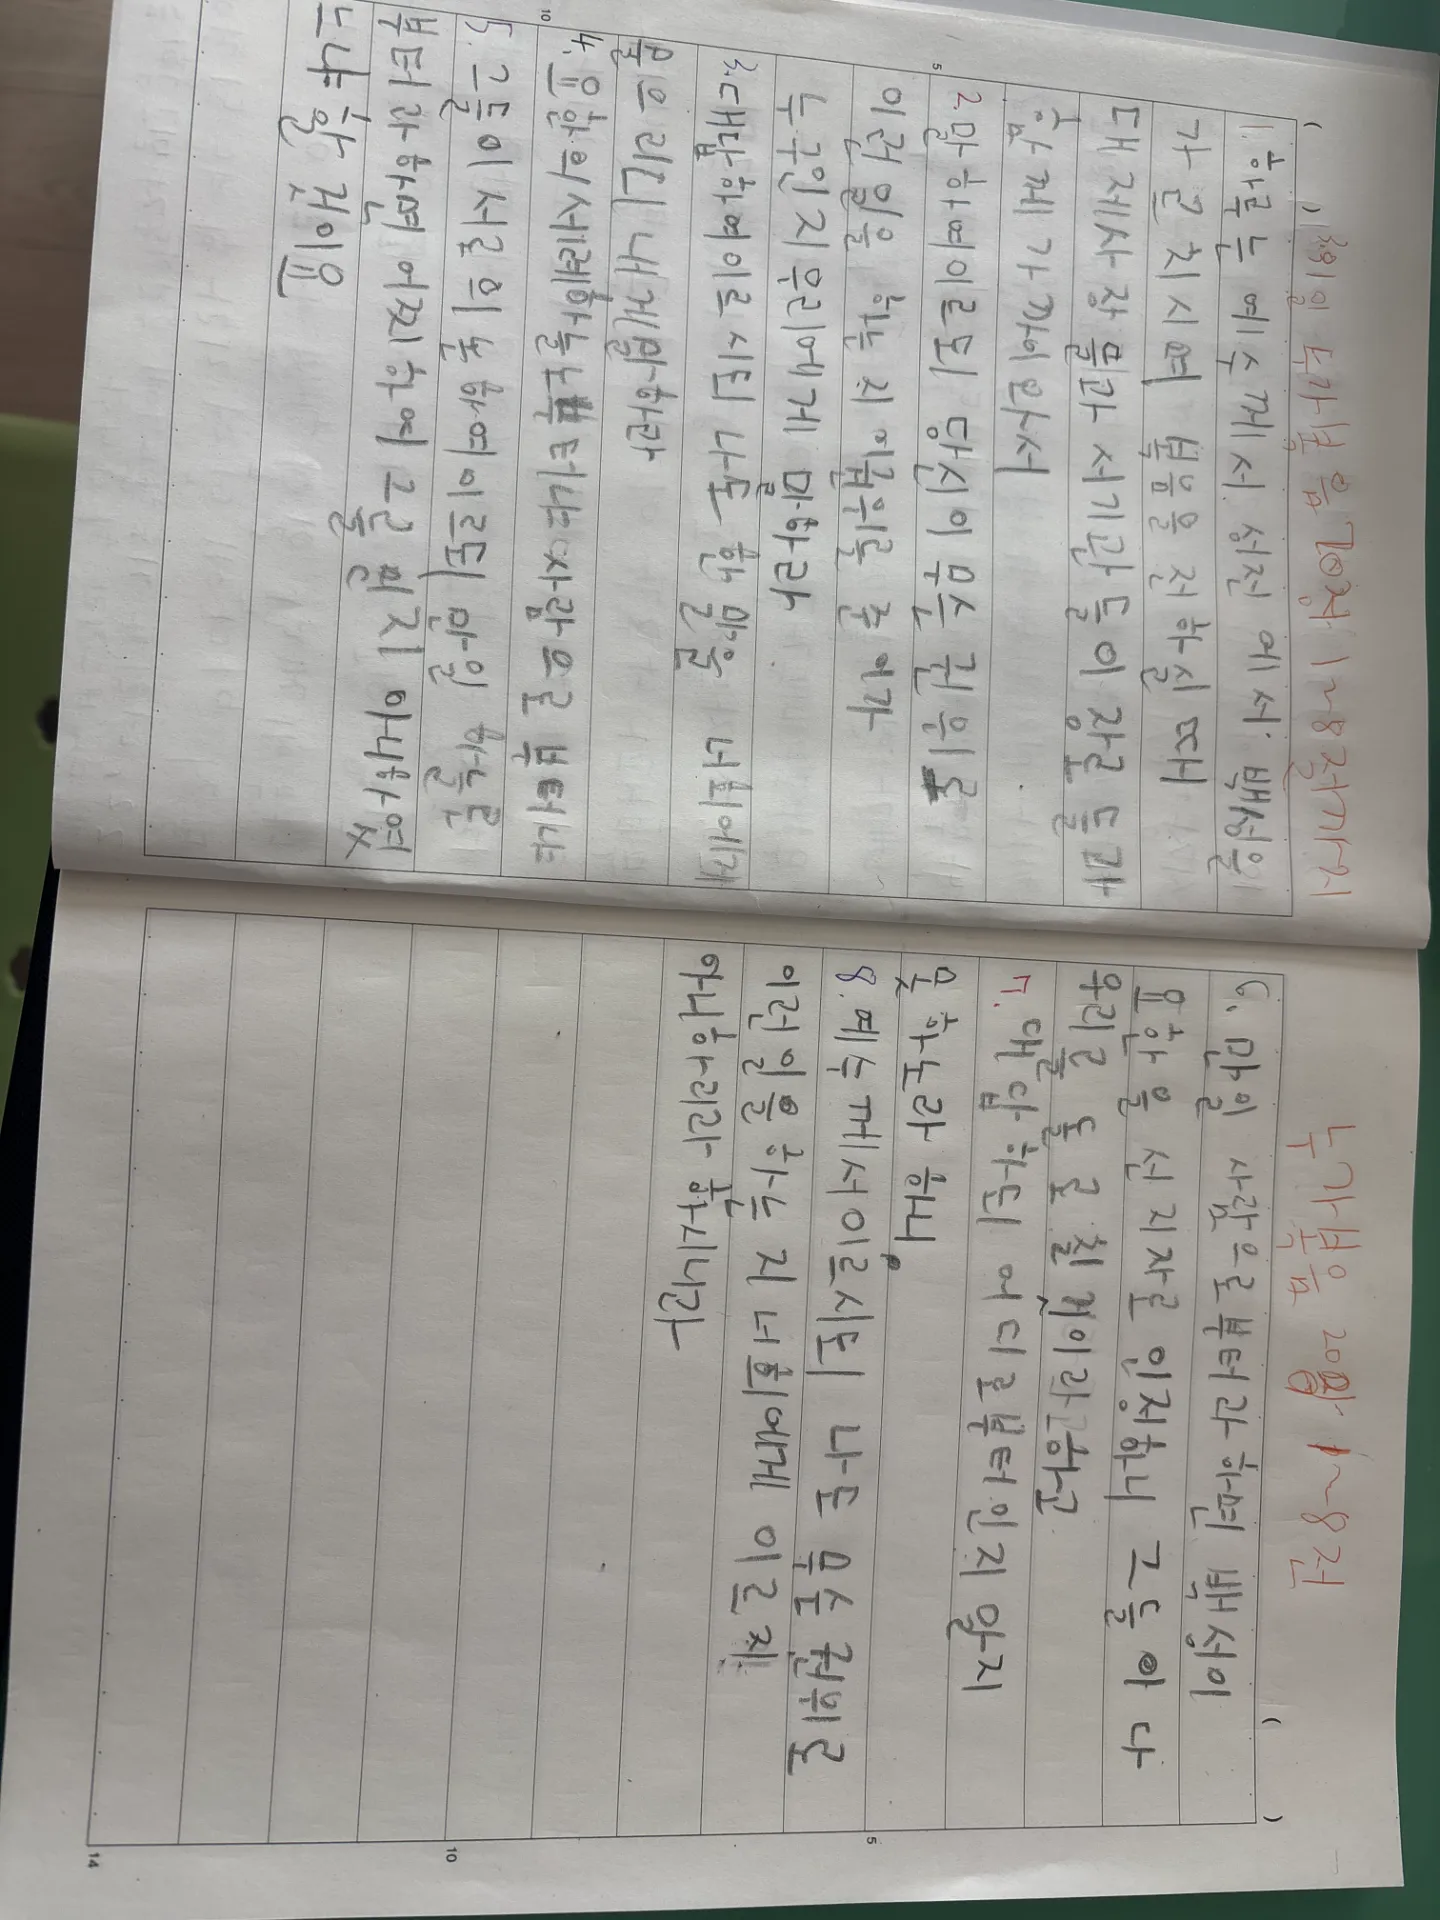 ( ) 13일 누가복음 20장 1~8절까지
1. 하루는 예수께서 성전에서 백성을
가르치시며 복음을 전하실 때
대제사장들과 서기관들이 장로들과
함께 가까이 와서
2. 말하여 이르되 당신이 무슨 권위로
이런 일을 하는지 이 권위를 준 이가
누구인지 우리에게 말하라
3. 대답하여 이르시되 나도 한 말을 너희에게
물으리니 내게 말하라
4. 요한의 세례가 하늘로부터냐 사람으로부터냐
5. 그들이 서로 의논하여 이르되 만일 하늘로
부터라 하면 어찌하여 그를 믿지 아니하였
느냐 할 것이요
누가복음 20장 1~8절
( )
6. 만일 사람으로부터라 하면 백성이
요한을 선지자로 인정하니 그들이 다
우리를 돌로 칠 것이라 하고
7. 대답하되 어디로부터인지 알지
못하노라 하니
8. 예수께서 이르시되 나도 무슨 권위로
이런 일을 하는지 너희에게 이르지
아니하리라 하시니라
5
10
5
10
14